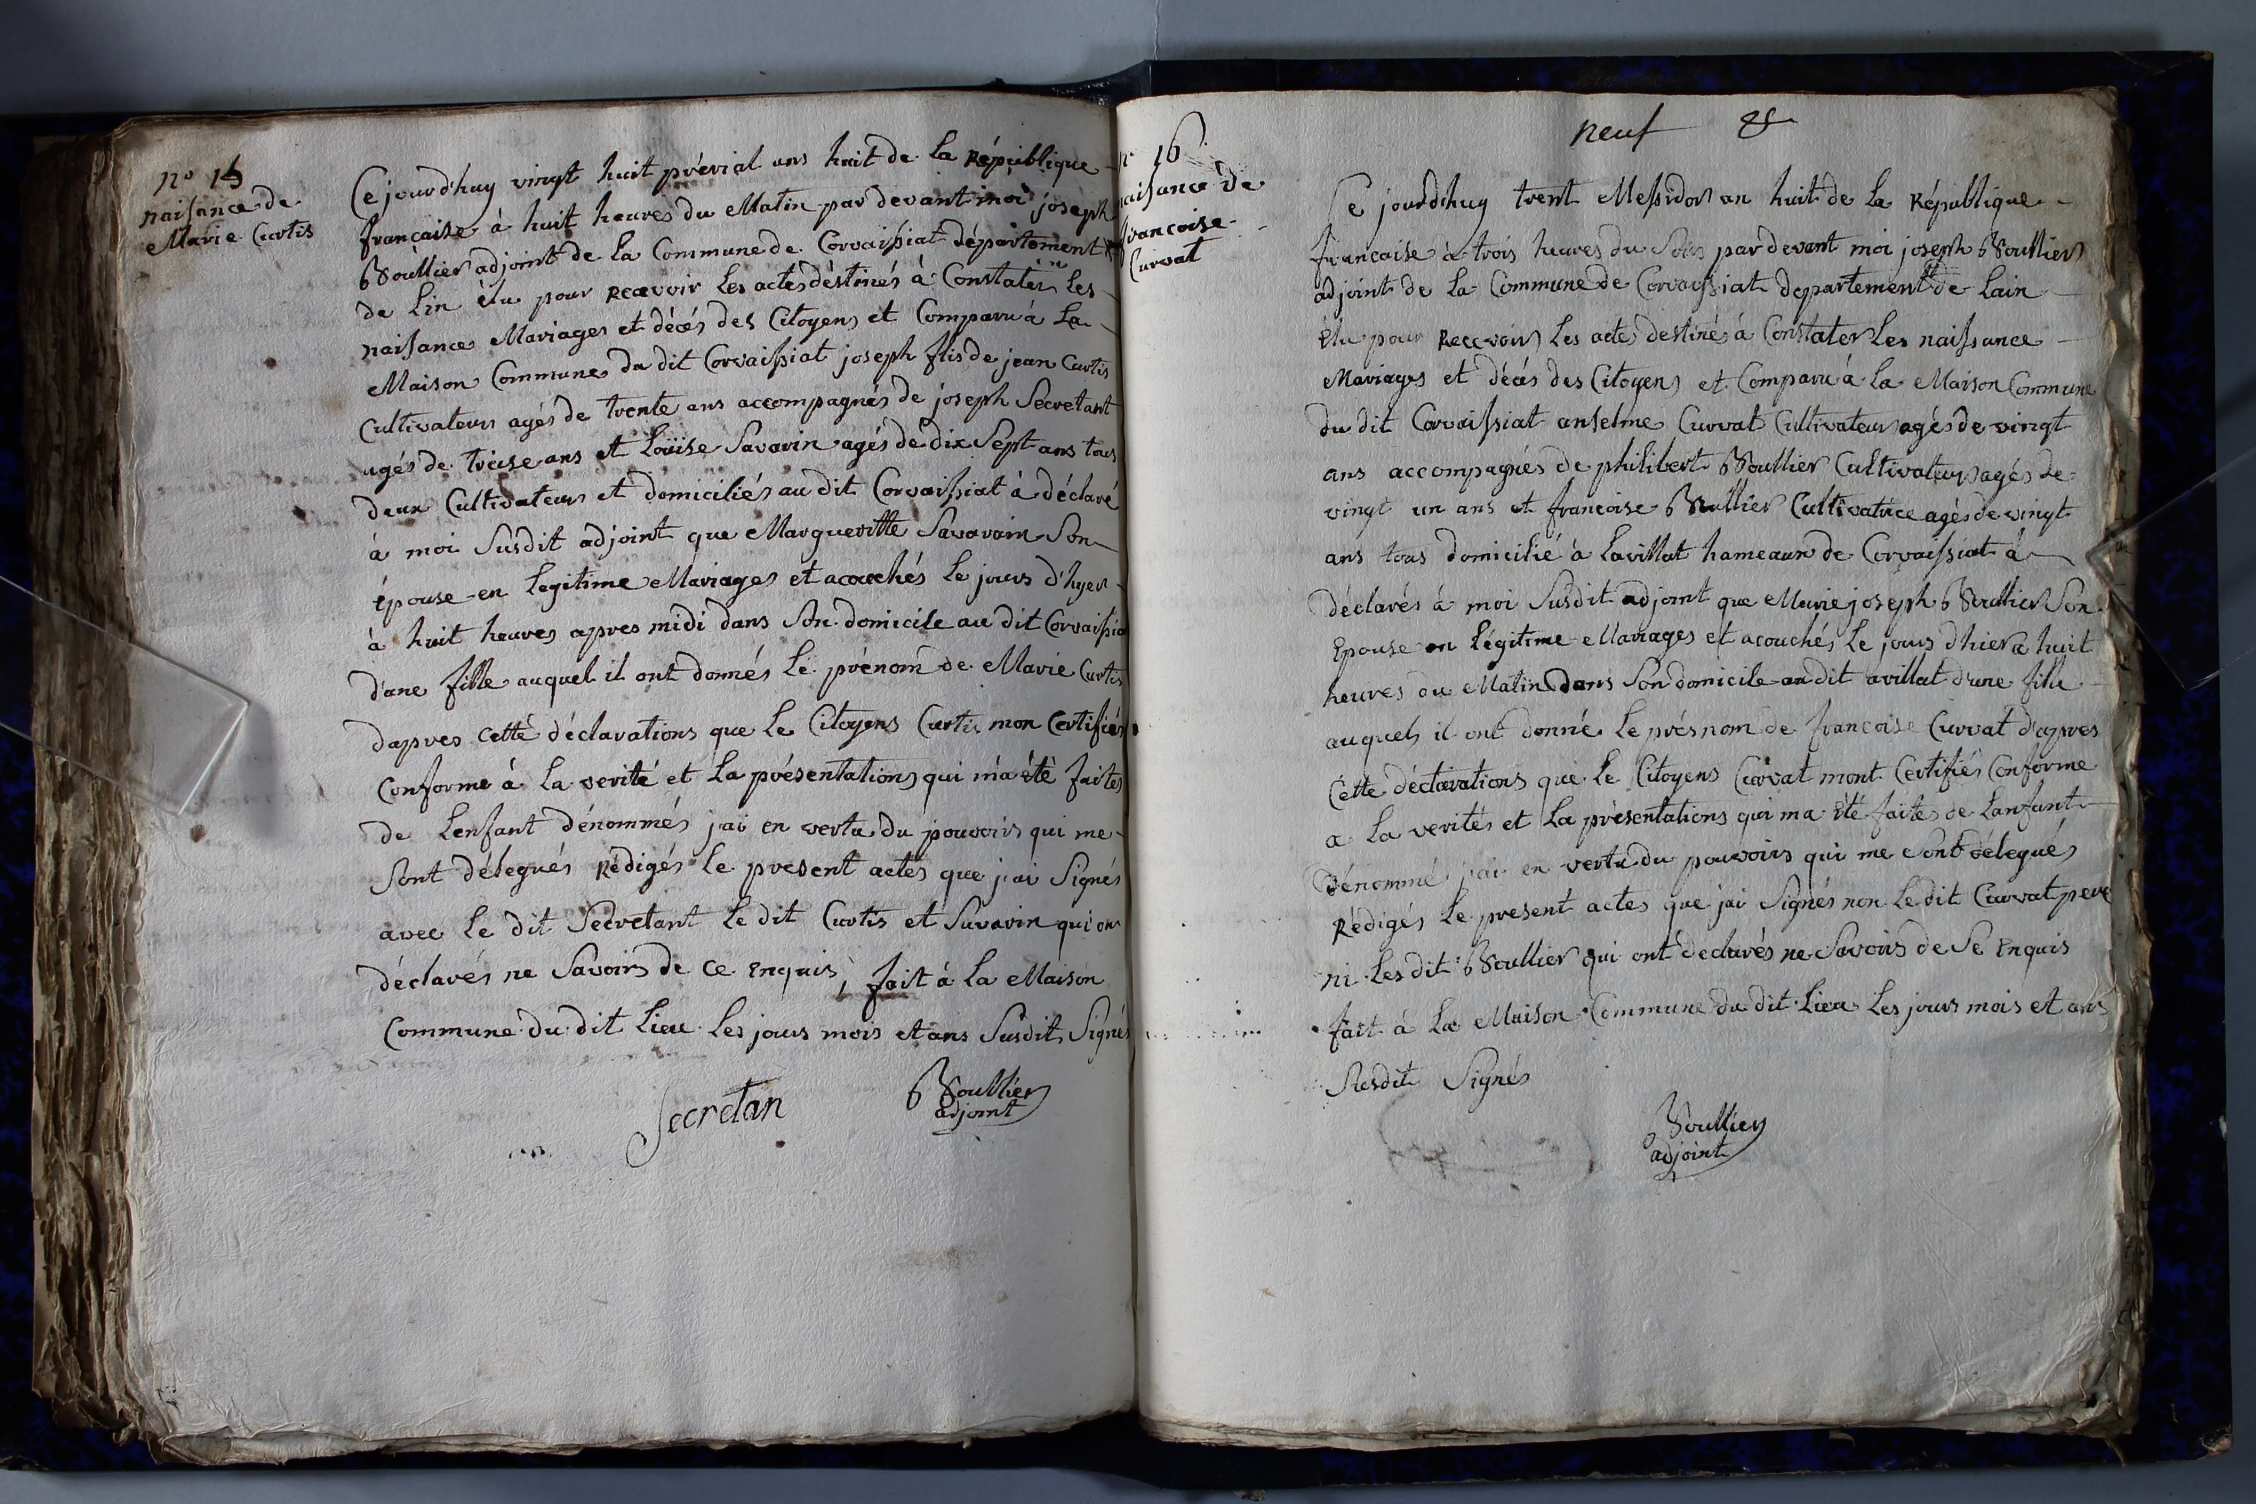 n° 15
naissance de
Marie Curtis
Cejourd'huy vingt huit prérial ans huit de la République
française à huit heures du Matin par devant moi joseph
Boullier adjoint de la Commune de Corvaissiat département
de Lin élu pour recevoir les actes déstinés à Constatér les
naissances Mariages et décés des Citoyens et Comparu à La
Maison Commune du dit Corvaissiat joseph flis de jean Curtis
Cultivateurs agés de trente ans accompagnés de joseph Secretant
agés de treise ans et Loüise Savarin agés de dix Sept ans tous
deux Cultivateurs et domiciliés au dit Corvaissiat à déclaré
à moi Susdit adjoint que Margueritte Savarain Son
épouse en Legitime Mariages et acouchés le jours d'hyer
à huit heures apres midi dans Son domicile au dit Corvaissia
d'une fille auquel il ont donnés le prénom de Marie Curtis
dapres cette déclarations que le Citoyens Curtis mon Certifiés
Conforme à La verité et La présentations qui m'a été faites
de Lenfant dénommés j'ai en vertu du pouvoirs qui me
Sont délegués Rédigés le present actes que j'ai Signés
avec le dit Secretant le dit Curtis et Savarin qui on
déclarés ne Savoirs de ce enquis, fait à la Maison
Commune du dit Lieu les jours mois et ans Susdit Signés
Secretan
Boullier
adjoint
neuf
n° 16
naissance de
francoise
Curvat
Ce jourd'huy trent Messidor an huit de La République
francaise à trois heures du Soirs par devant moi joseph Boullier
adjoint de La Commune de Corvaissiat departement de Lain
élu pour Recevoirs Les actes destinés à Constater Les naissance
Mariages et décés des Citoyens et Comparu à La Maison Commune
du dit Corvaissiat anselme Curvat Cultivateurs agés de vingt
ans accompagnés de philibert Boullier Cultivateurs agés de
vingt un ans et francoise Boullier Cultivatrice agés de vingt
ans tous domicilié à Lavillat hameaux de Corvaissiat à
déclarés à moi Susdit adjoint que Marie joseph Boullier Son
Epouse en Légitime Mariages et acouchés Le jours d'hier a huit
heures du Matin dans Son domicile au dit avillat d'une fille
auquels il ont donné Le présnom de francoise Curvat d'apres
Cette déclarations que Le Citoyens Curvat mont Certifiés Conforme
a La verités et La présentations qui ma été faites de Lanfant
dénommé j'ai en vertu du pouvoirs qui me Sont délegués
Rédigés Le present actes que jai Signés non Le dit Curvat pere
ni Les dit Boullier qui ont déclarés ne Savoirs de Se Enquis
fait à La Maison Commune du dit Lieu Les jours mois et ans
Susdit Signés
Boullier
adjoint